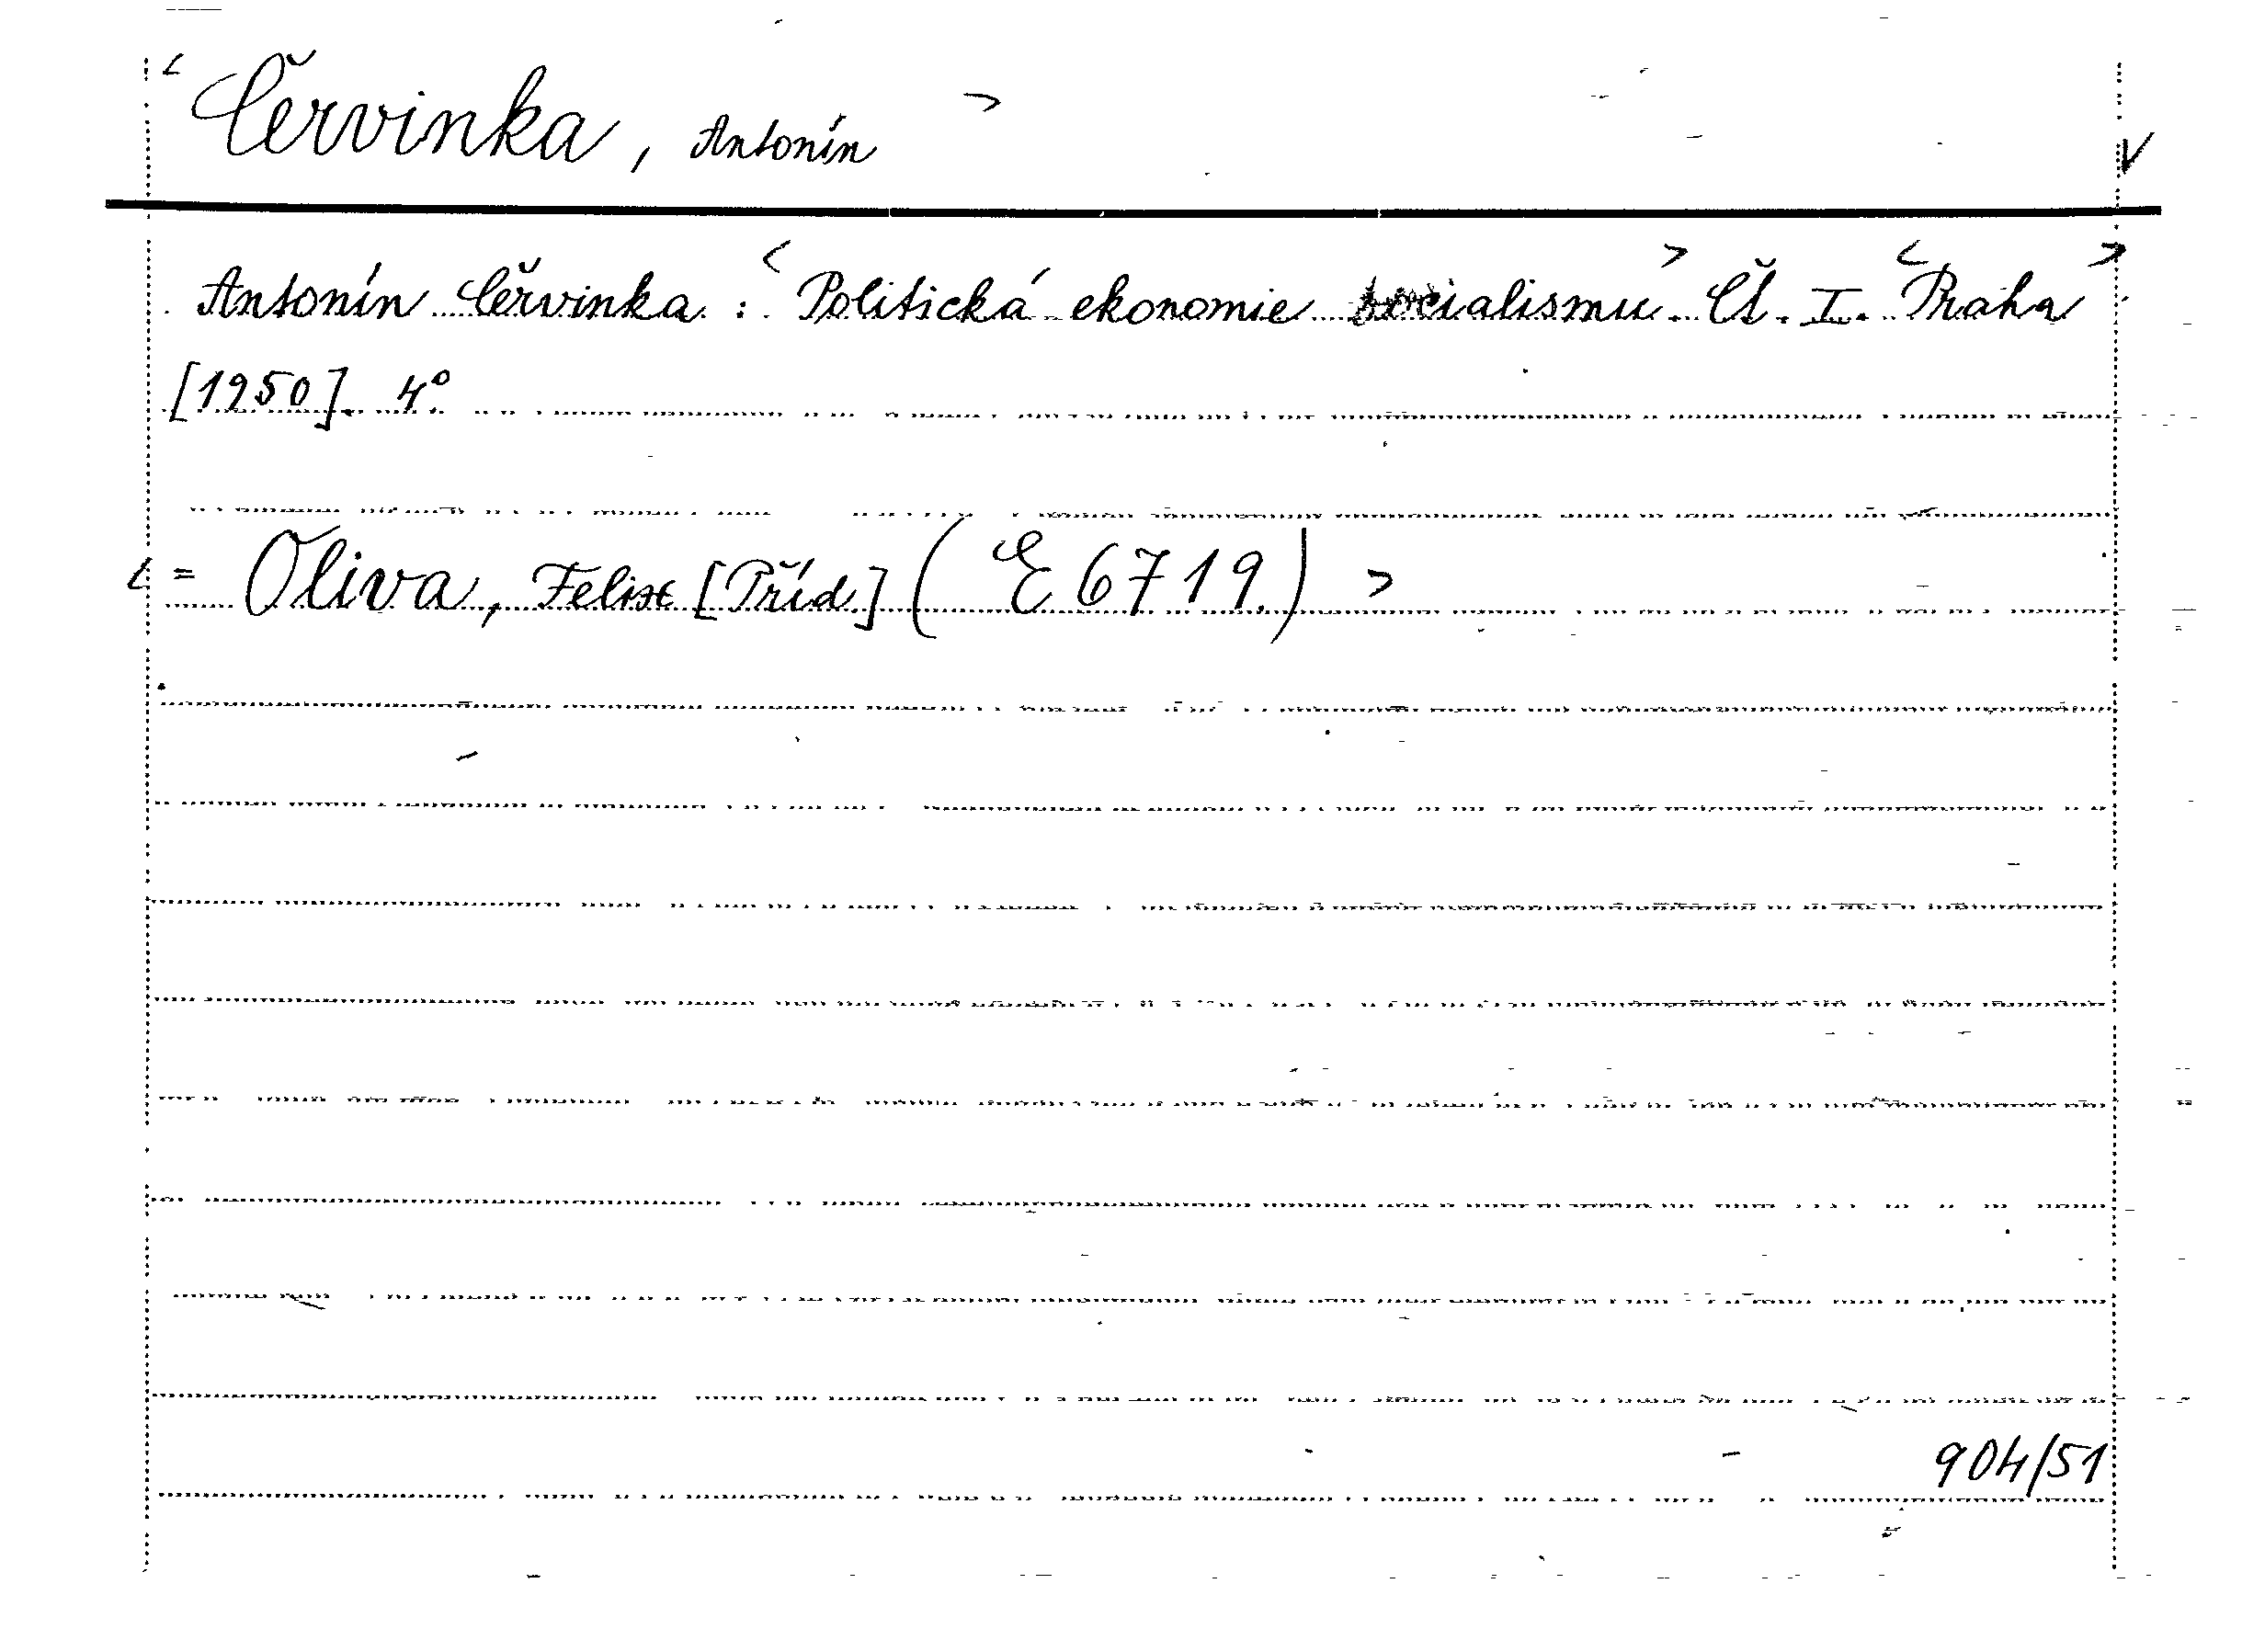 < Červinka, Antonín > V
Antonín Červinka: < Politická ekonomie socialismu. > Čl. I. < Praha >
[1950]. 4°.
< = Oliva, Felix [Příd] (E 6719) >
904/51